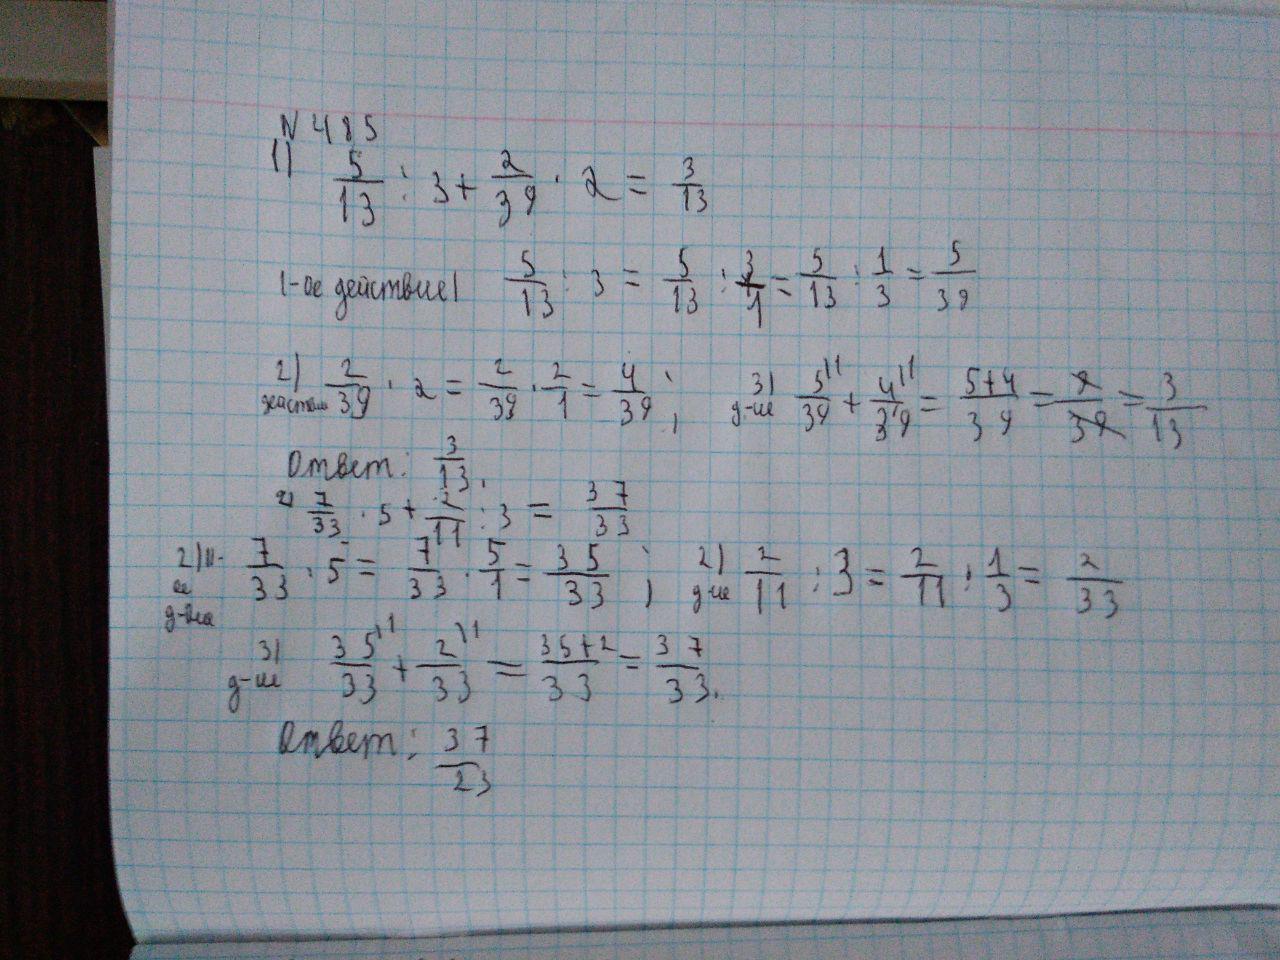 N 485
1) 5/13 : 3 + 2/39 · 2 = 3/13
1-ое действие) 5/13 : 3 = 5/13 : 3/1 = 5/13 : 1/3 = 5/39
2) действие 2/39 · 2 = 2/39 · 2/1 = 4/39 ; 3) д-ие 5\1/39 + 4\1/39 = 5+4/39 = 9/39 = 3/13
Ответ: 3/13.
2) 7/33 · 5 + 2/11 : 3 = 37/33
2) 1-ое 7/33 · 5 = 7/33 · 5/1 = 35/33 ; 2) д-ие 2/11 : 3 = 2/11 · 1/3 = 2/33
3) д-ие 35\1/33 + 2\1/33 = 35+2/33 = 37/33.
Ответ: 37/23